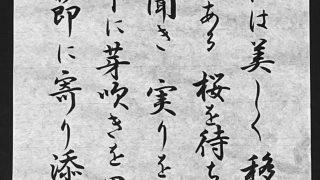 は美しく移
ある 桜を待ち
聞き 実りを
に芽吹きを
節に寄り添